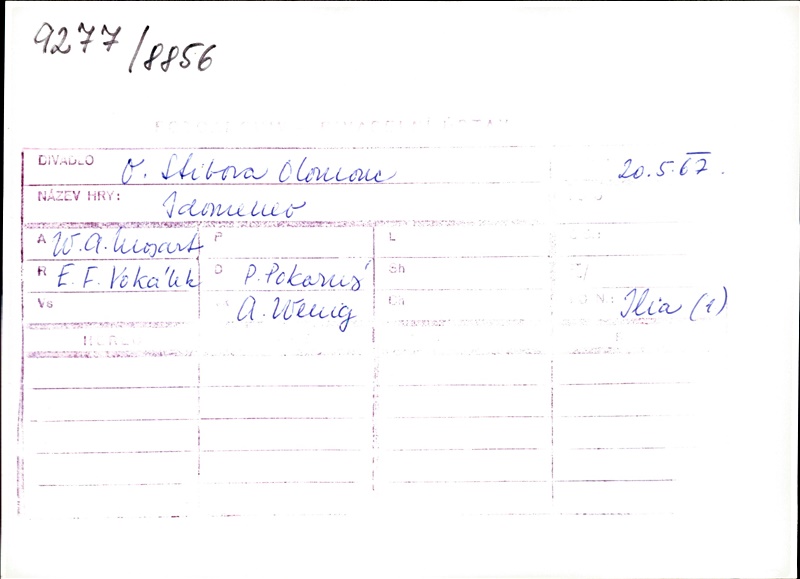 9277/8856
DIVADLO O. Stibora Olomouc 20.5.67.
NÁZEV HRY: Idomeneo
A W. A. Mozart P L
R E. F. Vokálek D P. Pokorný Sh
Vs A. Wenig Ch Ilia (1)